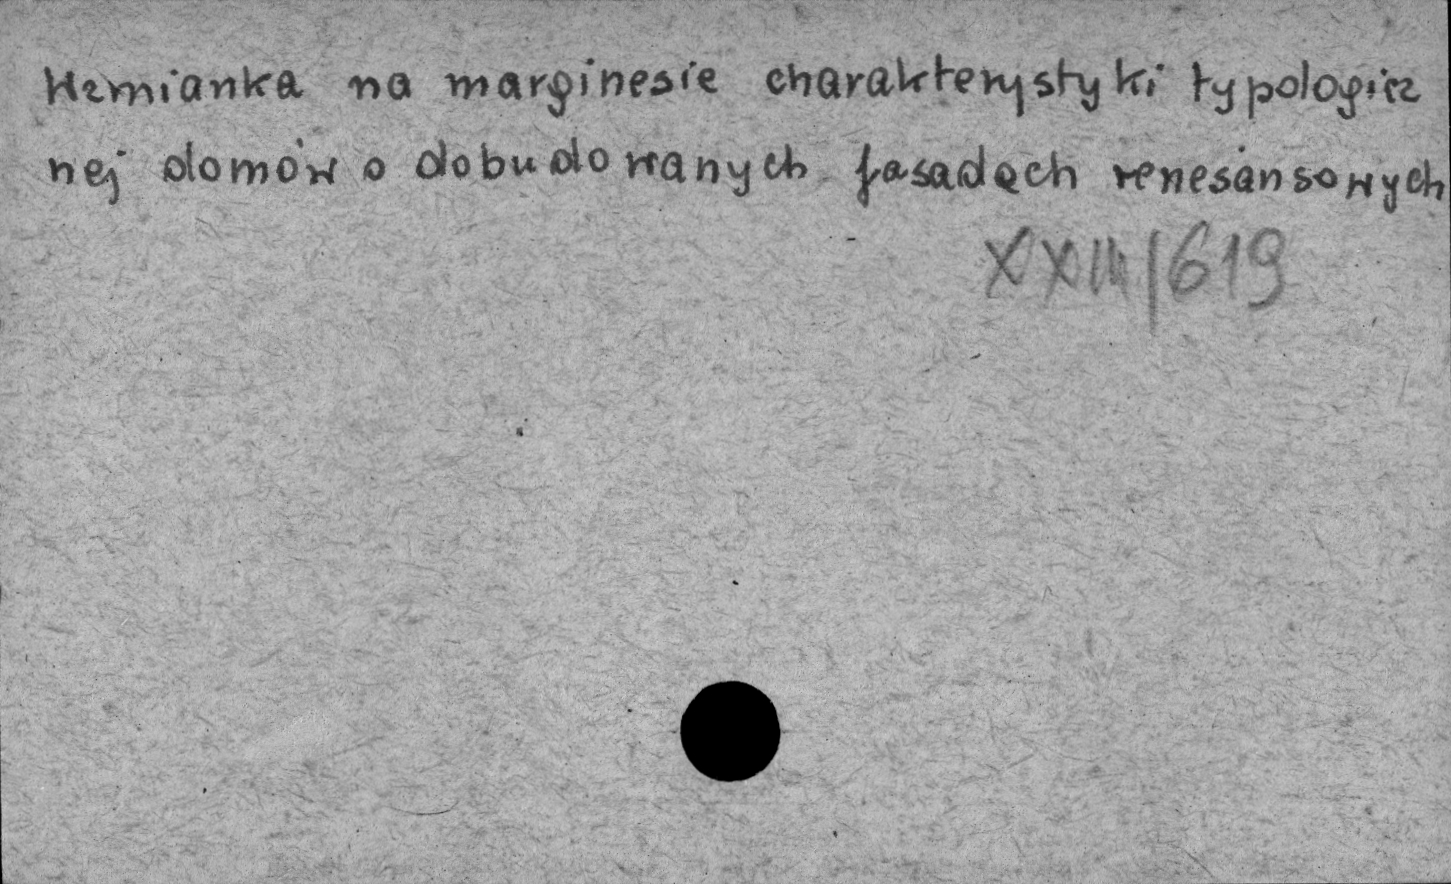 Wzmianka na marginesie charakterystyki typologicz
nej domów o dobudowanych fasadach renesansowych
XXIII/619